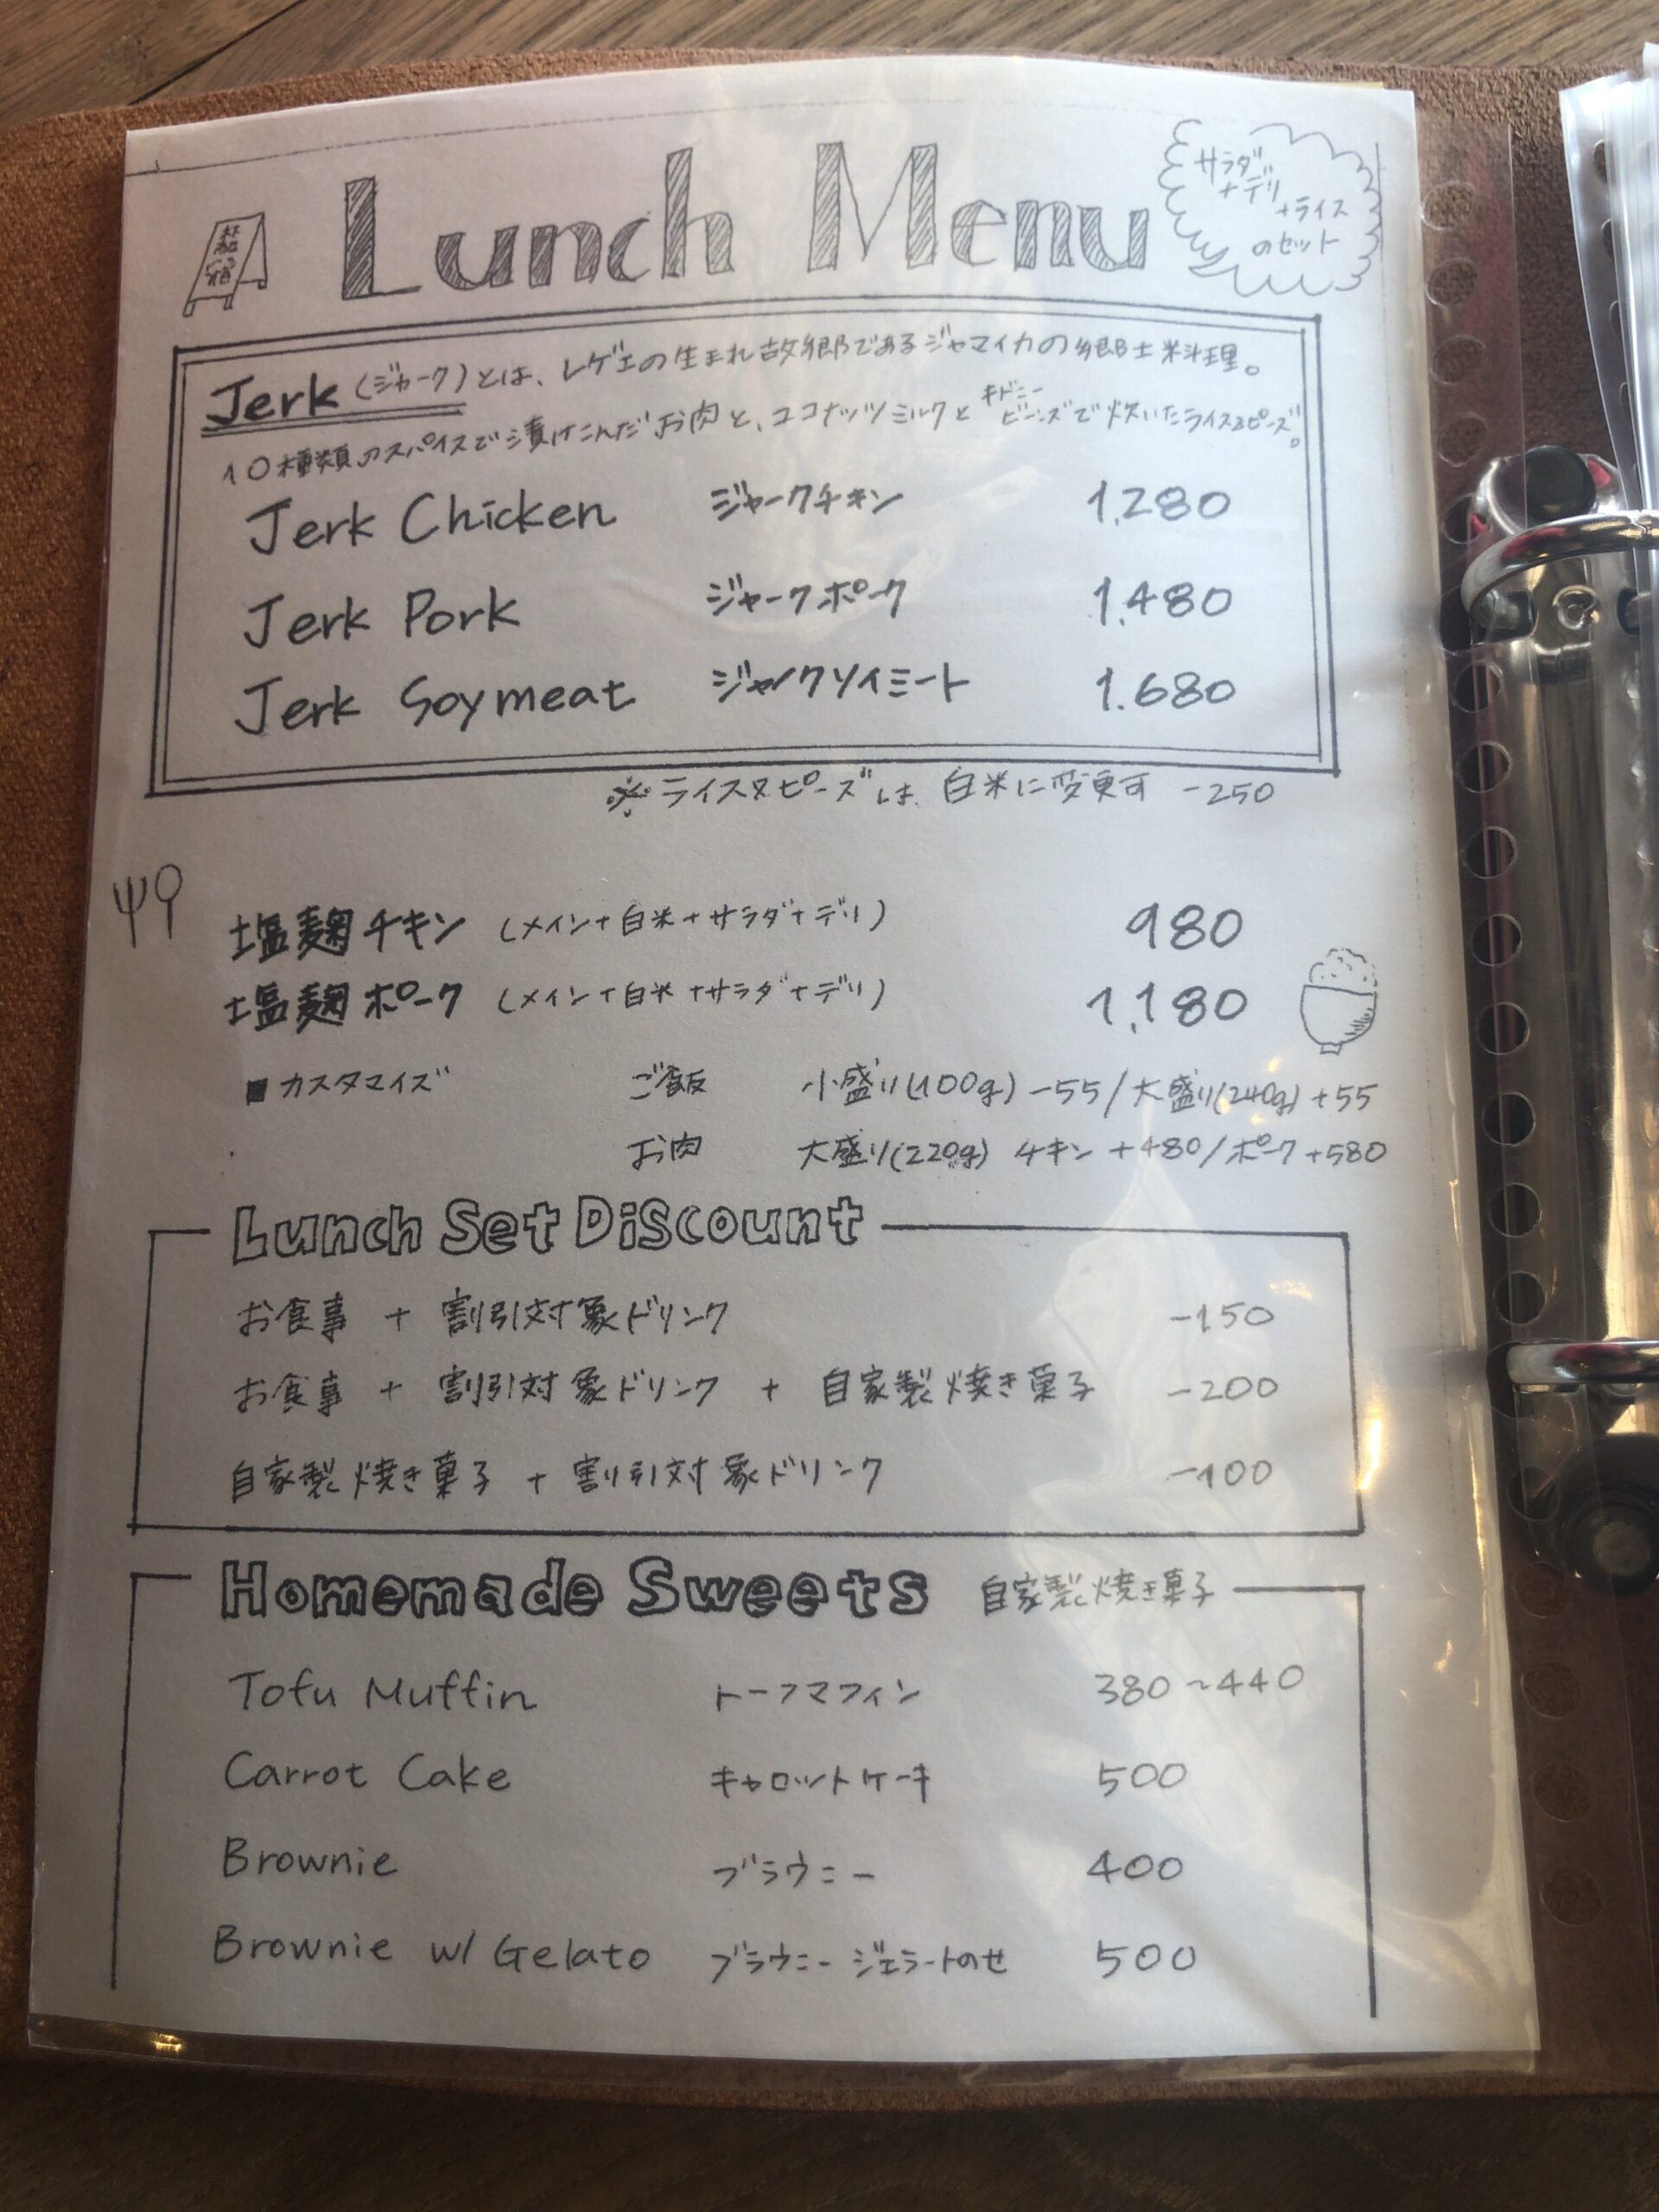 Lunch Menu
サラダ
+デリ
+ライス
のセット
Jerk (ジャーク)とは、レゲエの生まれ故郷であるジャマイカの郷土料理。
10種類のスパイスで漬けこんだお肉と、ココナッツミルクとキドニービーンズで炊いたライス&ピーズ。
Jerk Chicken ジャークチキン 1,280
Jerk Pork ジャークポーク 1,480
Jerk Soymeat ジャークソイミート 1.680
※ライス&ピーズは 白米に変更可 -250
塩麹チキン (メイン+白米+サラダ+デリ) 980
塩麹ポーク (メイン+白米+サラダ+デリ) 1,180
■カスタマイズ ご飯 小盛り(100g) -55/大盛り(240g) +55
お肉 大盛り(220g) チキン +480/ポーク +580
Lunch Set Discount
お食事 + 割引対象ドリンク -150
お食事 + 割引対象ドリンク + 自家製焼き菓子 -200
自家製焼き菓子 + 割引対象ドリンク -100
Homemade Sweets 自家製焼き菓子
Tofu Muffin トーフマフィン 380~440
Carrot Cake キャロットケーキ 500
Brownie ブラウニー 400
Brownie w/ Gelato ブラウニー ジェラートのせ 500